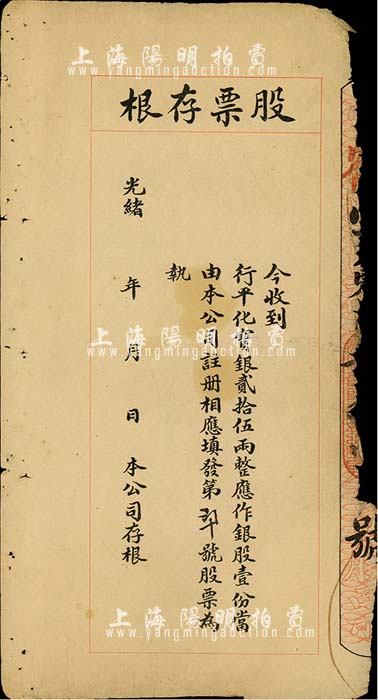 上海陽明拍賣
www.yangmingauction.com
股票存根
今收到
行平化寶銀貳拾伍兩整應作銀股壹份當
由本公司註册相應填發第 號股票為
執
光緒 年 月 日 本公司存根
號
上海陽明拍賣
www.yangmingauction.com
上海陽明拍賣
www.yangmingauction.com